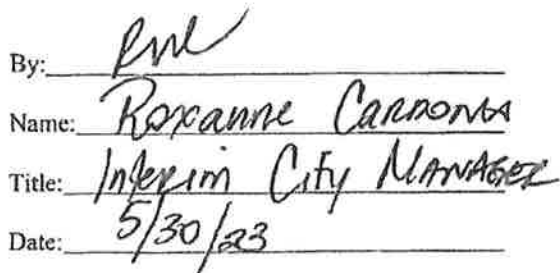 By:
Name: Roxanne Cardona
Title: Interim City Manager
Date: 5/30/23